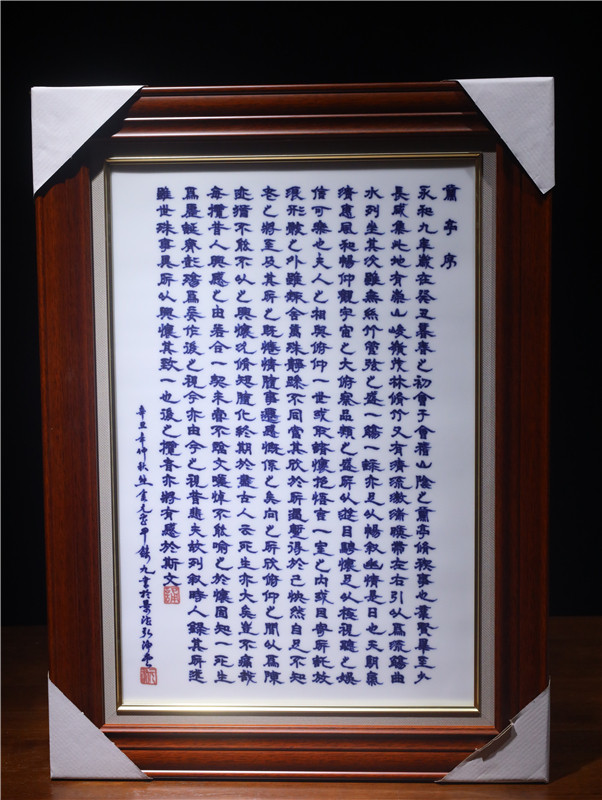 蘭亭序
永和九年歲在癸丑暮春之初會于會稽山陰之蘭亭脩稧事也羣賢畢至少
長咸集此地有崇山峻嶺茂林脩竹又有清流激湍暎帶左右引以爲流觴曲
水列坐其次雖無絲竹管弦之盛一觴一詠亦足以暢叙幽情是日也天朗氣
清惠風和暢仰觀宇宙之大俯察品類之盛所以遊目騁懷足以極視聽之娛
信可樂也夫人之相與俯仰一世或取諸懷抱悟言一室之内或因寄所託放
浪形骸之外雖趣舍萬殊靜躁不同當其欣於所遇蹔得於己快然自足不知
老之將至及其所之既惓情隨事遷感慨係之矣向之所欣俯仰之間以爲陳
迹猶不能不以之興懷况脩短隨化終期於盡古人云死生亦大矣豈不痛哉
每攬昔人興感之由若合一契未嘗不臨文嗟悼不能喻之於懷固知一死生
爲虛誕齊彭殤爲妄作後之視今亦由今之視昔悲夫故列叙時人錄其所述
雖世殊事異所以興懷其致一也後之攬者亦將有感於斯文
辛丑年仲秋 九書於景德